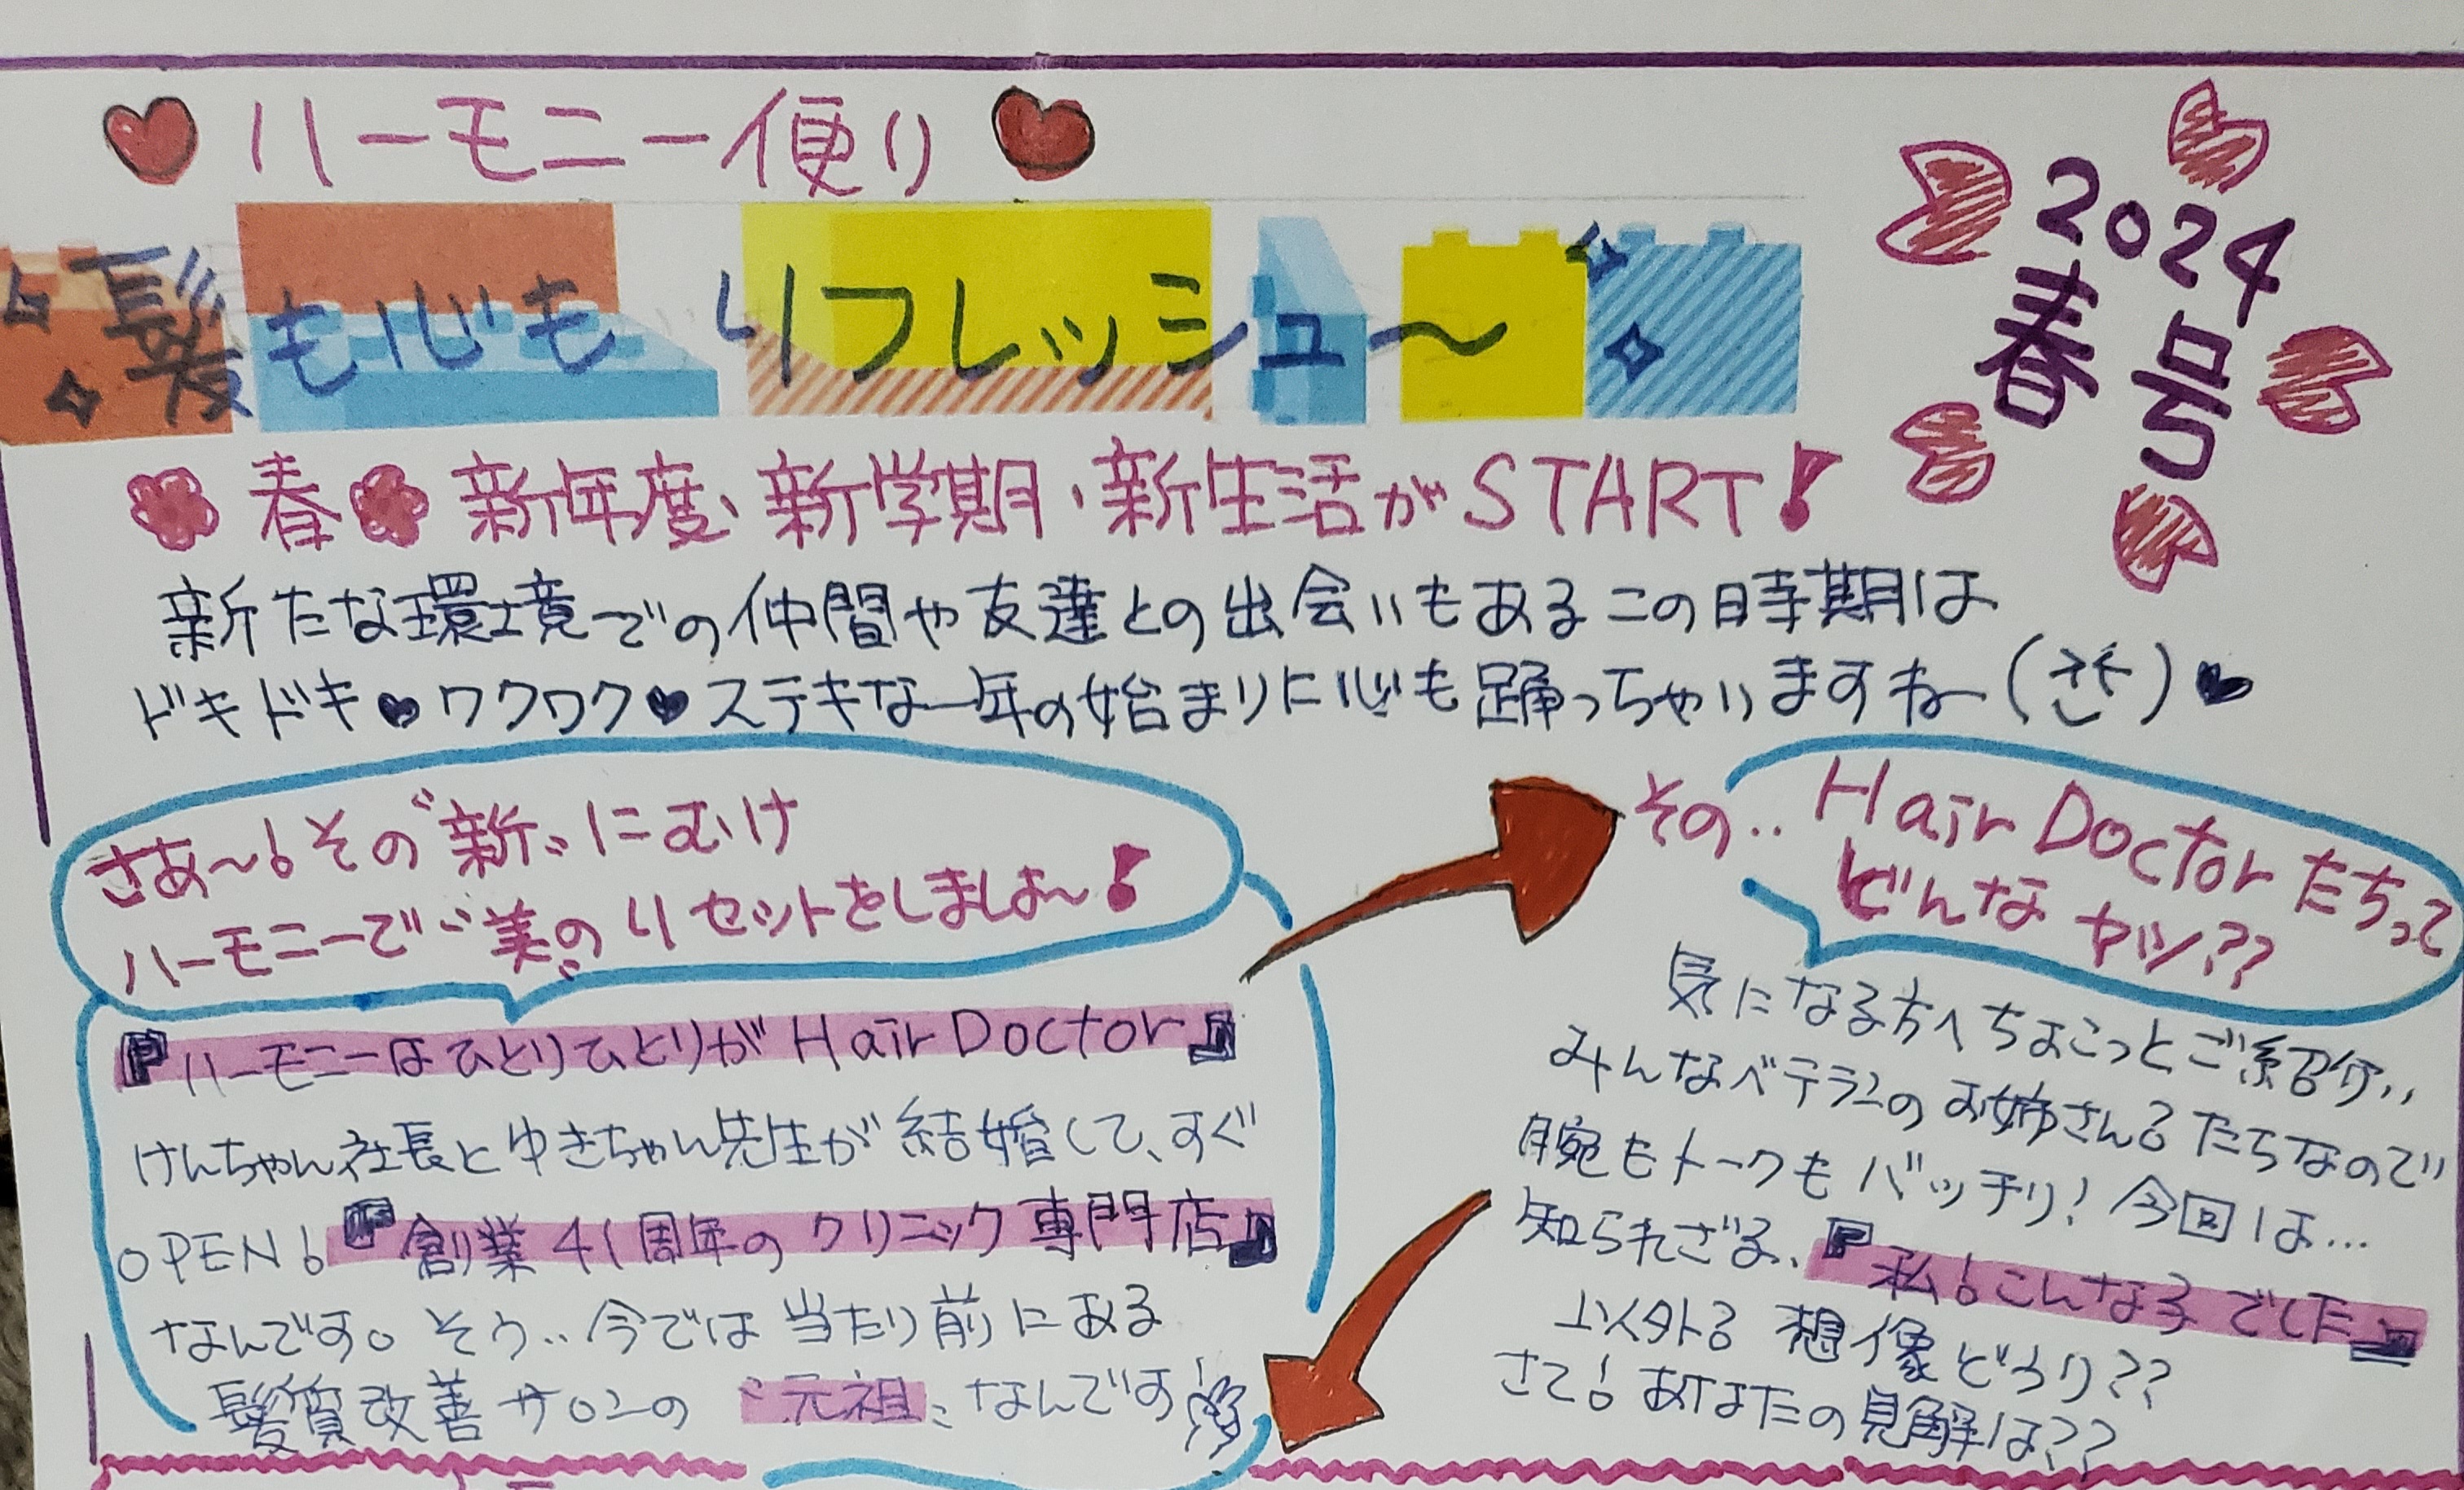 ハーモニー便り
2024
春号
髪も心もリフレッシュ〜
春 新年度、新学期、新生活がSTART!
新たな環境での仲間や友達との出会いもあるこの時期は
ドキドキ♥ワクワク♥ステキな一年の始まりに心も踊っちゃいますね〜(さき)♥
さぁ〜!その"新"にむけ
ハーモニーで"美"のリセットをしましょ〜!
『ハーモニーはひとりひとりがHair Doctor』
けんちゃん社長とゆきちゃん先生が結婚して、すぐ
OPEN!『創業41周年のクリニック専門店』
なんです。そう..今では当たり前にある
髪質改善サロンの"元祖"なんです!
その..Hair Doctorたちって
どんなヤツ??
気になる方へちょこっとご紹介..
みんなベテランのお姉さん?たちなので..
腕もトークもバッチリ!今回は...
知られざる、『私!こんな子でした』
以外?想像どうり??
さて!あなたの見解は??